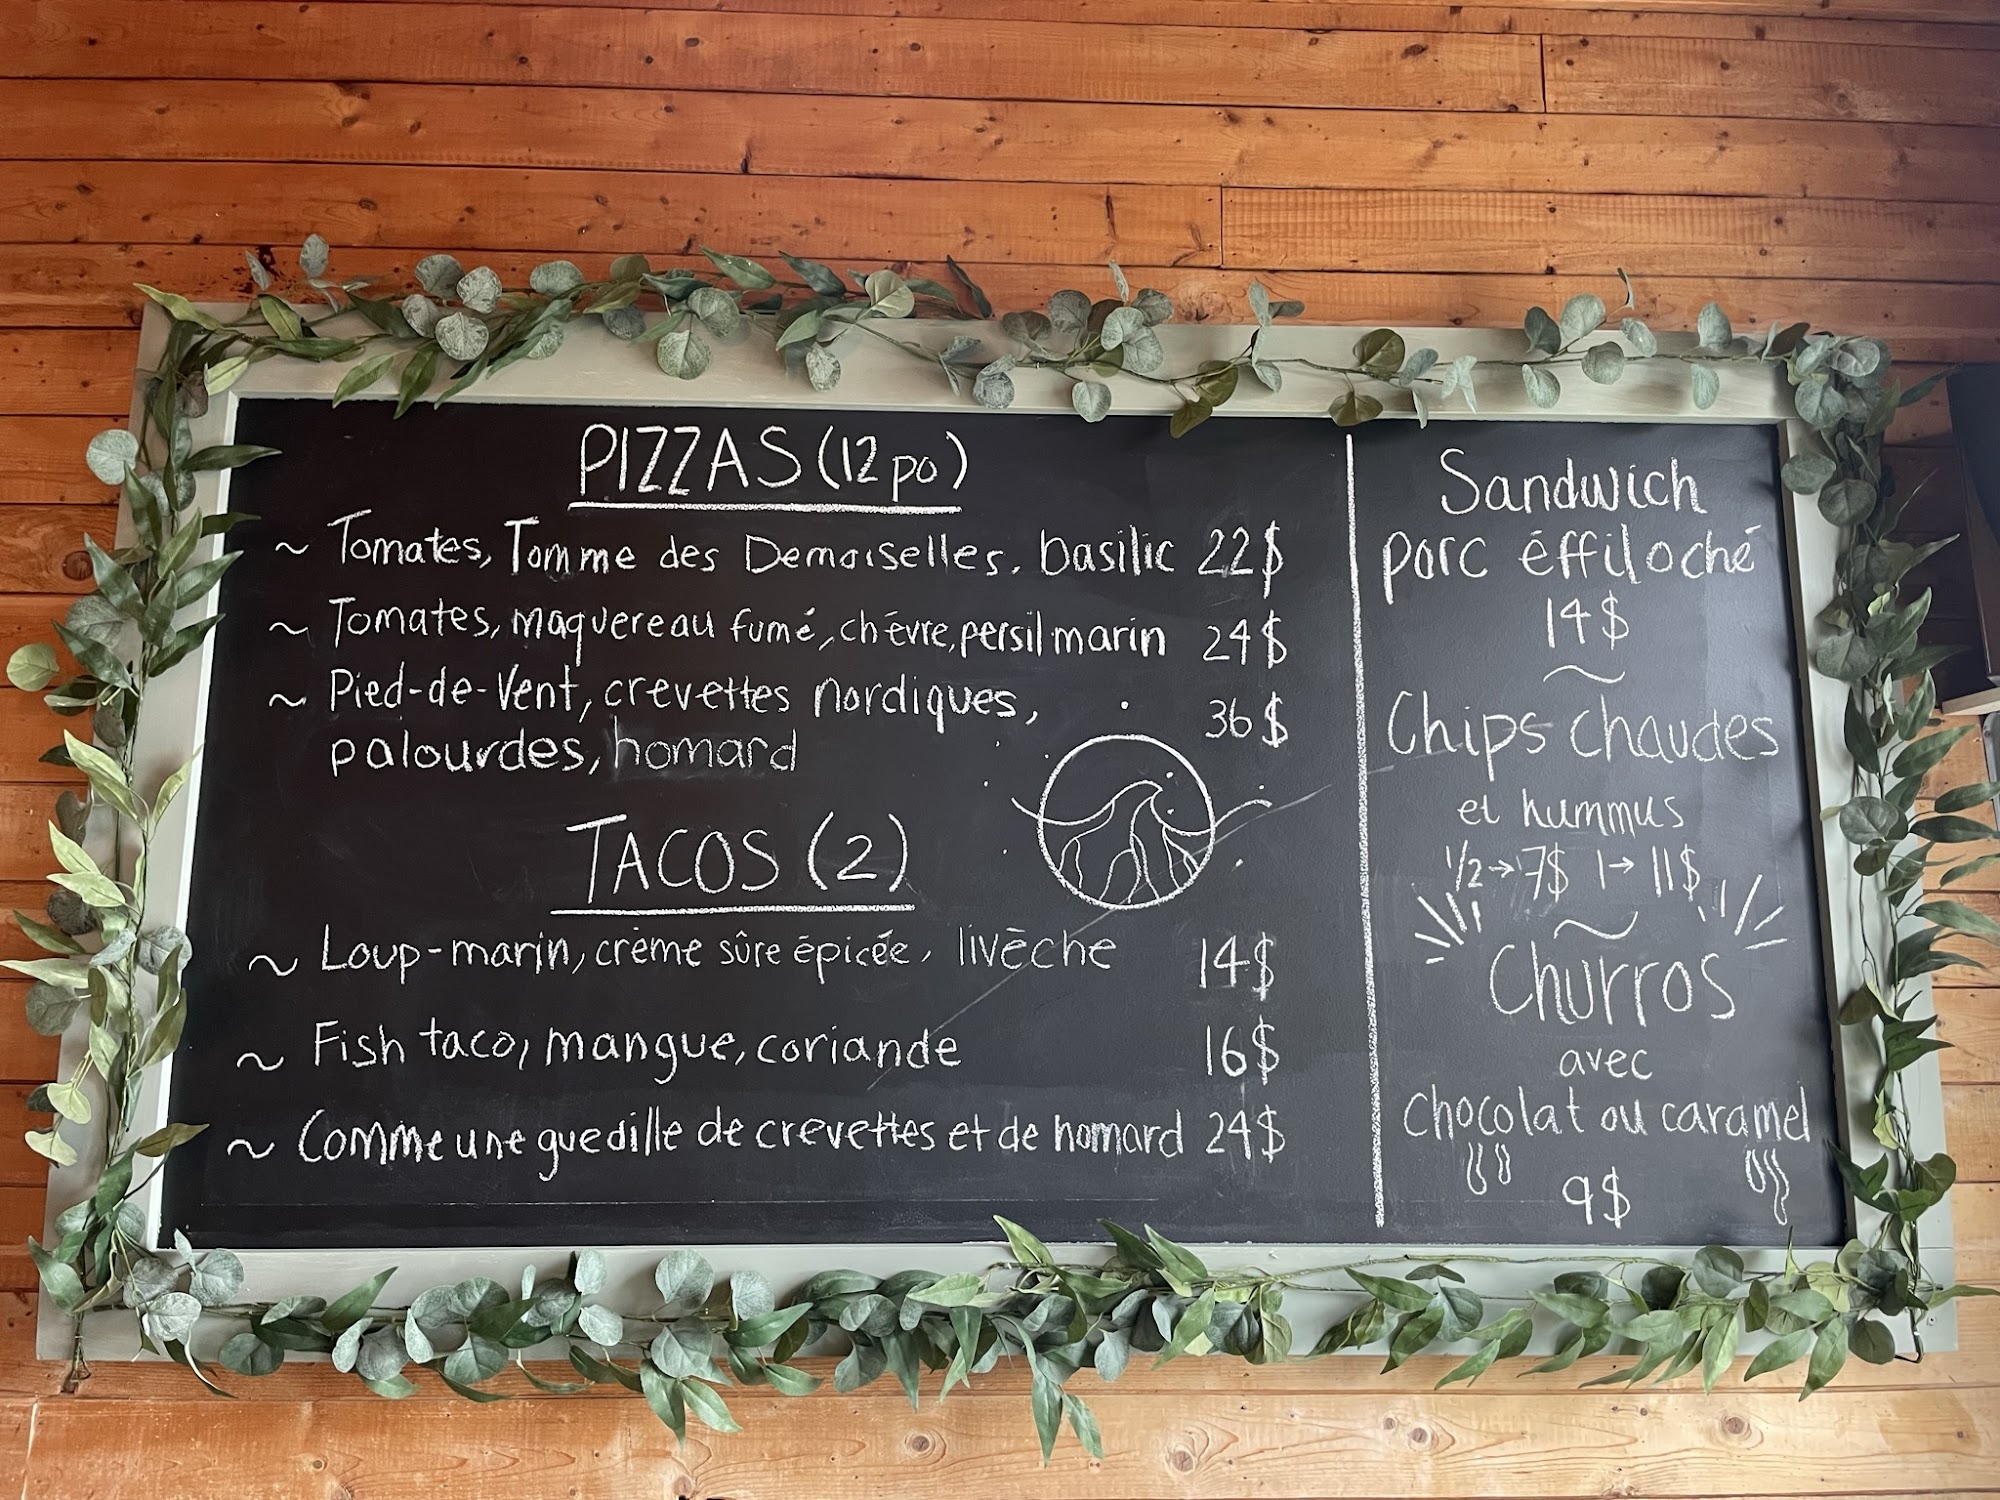 PIZZAS (12 po)
~ Tomates, Tomme des Demoiselles, basilic 22$
~ Tomates, maquereau fumé, chèvre, persil marin 24$
~ Pied-de-Vent, crevettes nordiques, 36$
palourdes, homard
TACOS (2)
~ Loup-marin, crème sûre épicée, livèche 14$
~ Fish taco, mangue, coriande 16$
~ Comme une guedille de crevettes et de homard 24$
Sandwich
porc éffiloché
14$
~
Chips chaudes
et hummus
1/2→7$ 1→11$
~
Churros
avec
chocolat ou caramel
9$